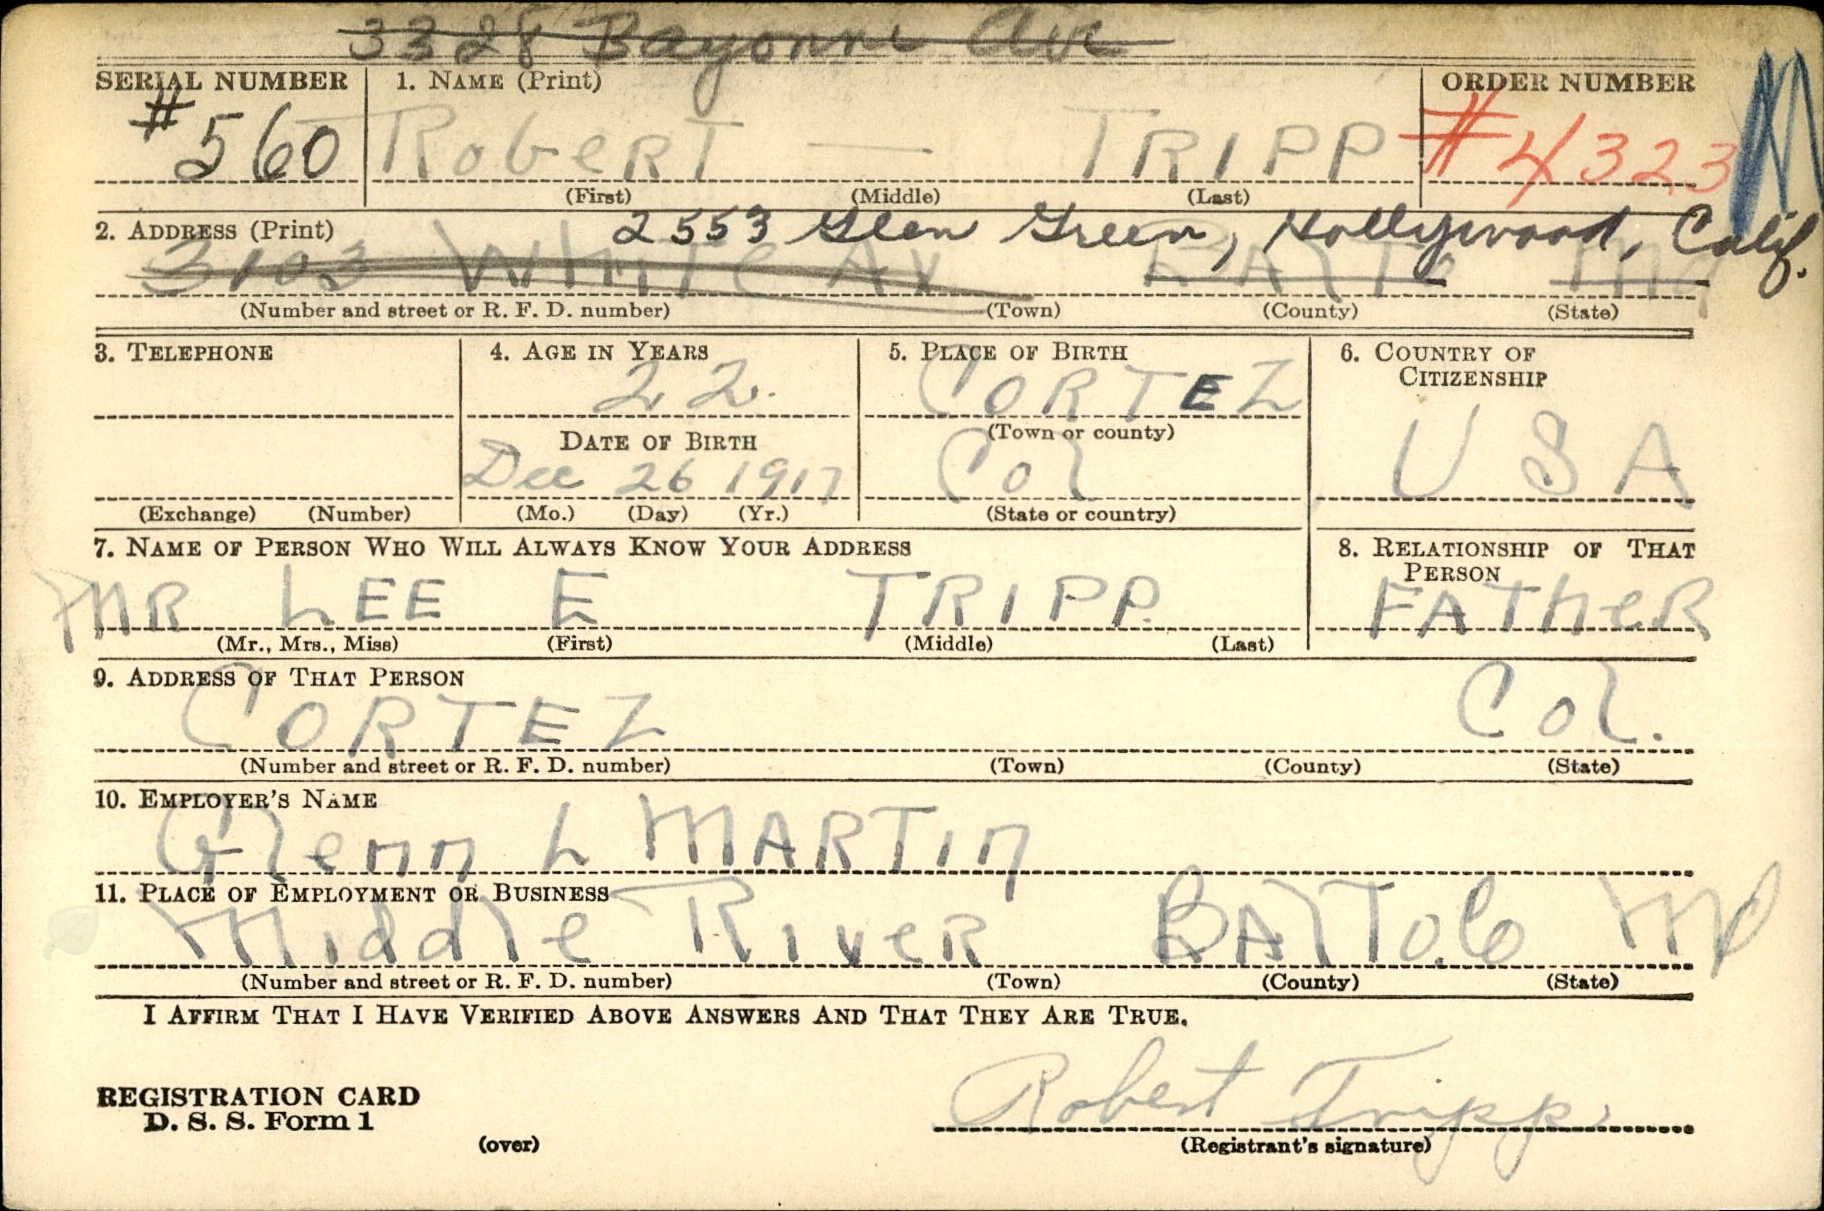 3328 Bayonne Ave
SERIAL NUMBER 1. NAME (Print) ORDER NUMBER
#560 Robert — TRIPP #4323
(First) (Middle) (Last)
2. ADDRESS (Print) 2553 Glen Green, Hollywood, Calif.
3103 White Av Balto Md
(Number and street or R. F. D. number) (Town) (County) (State)
3. TELEPHONE 4. AGE IN YEARS 5. PLACE OF BIRTH 6. COUNTRY OF
CITIZENSHIP
22. CORTEZ
(Town or county)
DATE OF BIRTH
Dec 26 1917 Col USA
(Exchange) (Number) (Mo.) (Day) (Yr.) (State or country)
7. NAME OF PERSON WHO WILL ALWAYS KNOW YOUR ADDRESS 8. RELATIONSHIP OF THAT
PERSON
MR LEE E TRIPP. FATHER
(Mr., Mrs., Miss) (First) (Middle) (Last)
9. ADDRESS OF THAT PERSON
CORTEZ Col.
(Number and street or R. F. D. number) (Town) (County) (State)
10. EMPLOYER'S NAME
Glenn L MARTIN
11. PLACE OF EMPLOYMENT OR BUSINESS
Middle River BALTO. Co MD
(Number and street or R. F. D. number) (Town) (County) (State)
I AFFIRM THAT I HAVE VERIFIED ABOVE ANSWERS AND THAT THEY ARE TRUE.
REGISTRATION CARD
D. S. S. Form 1 Robert Tripp
(over) (Registrant's signature)